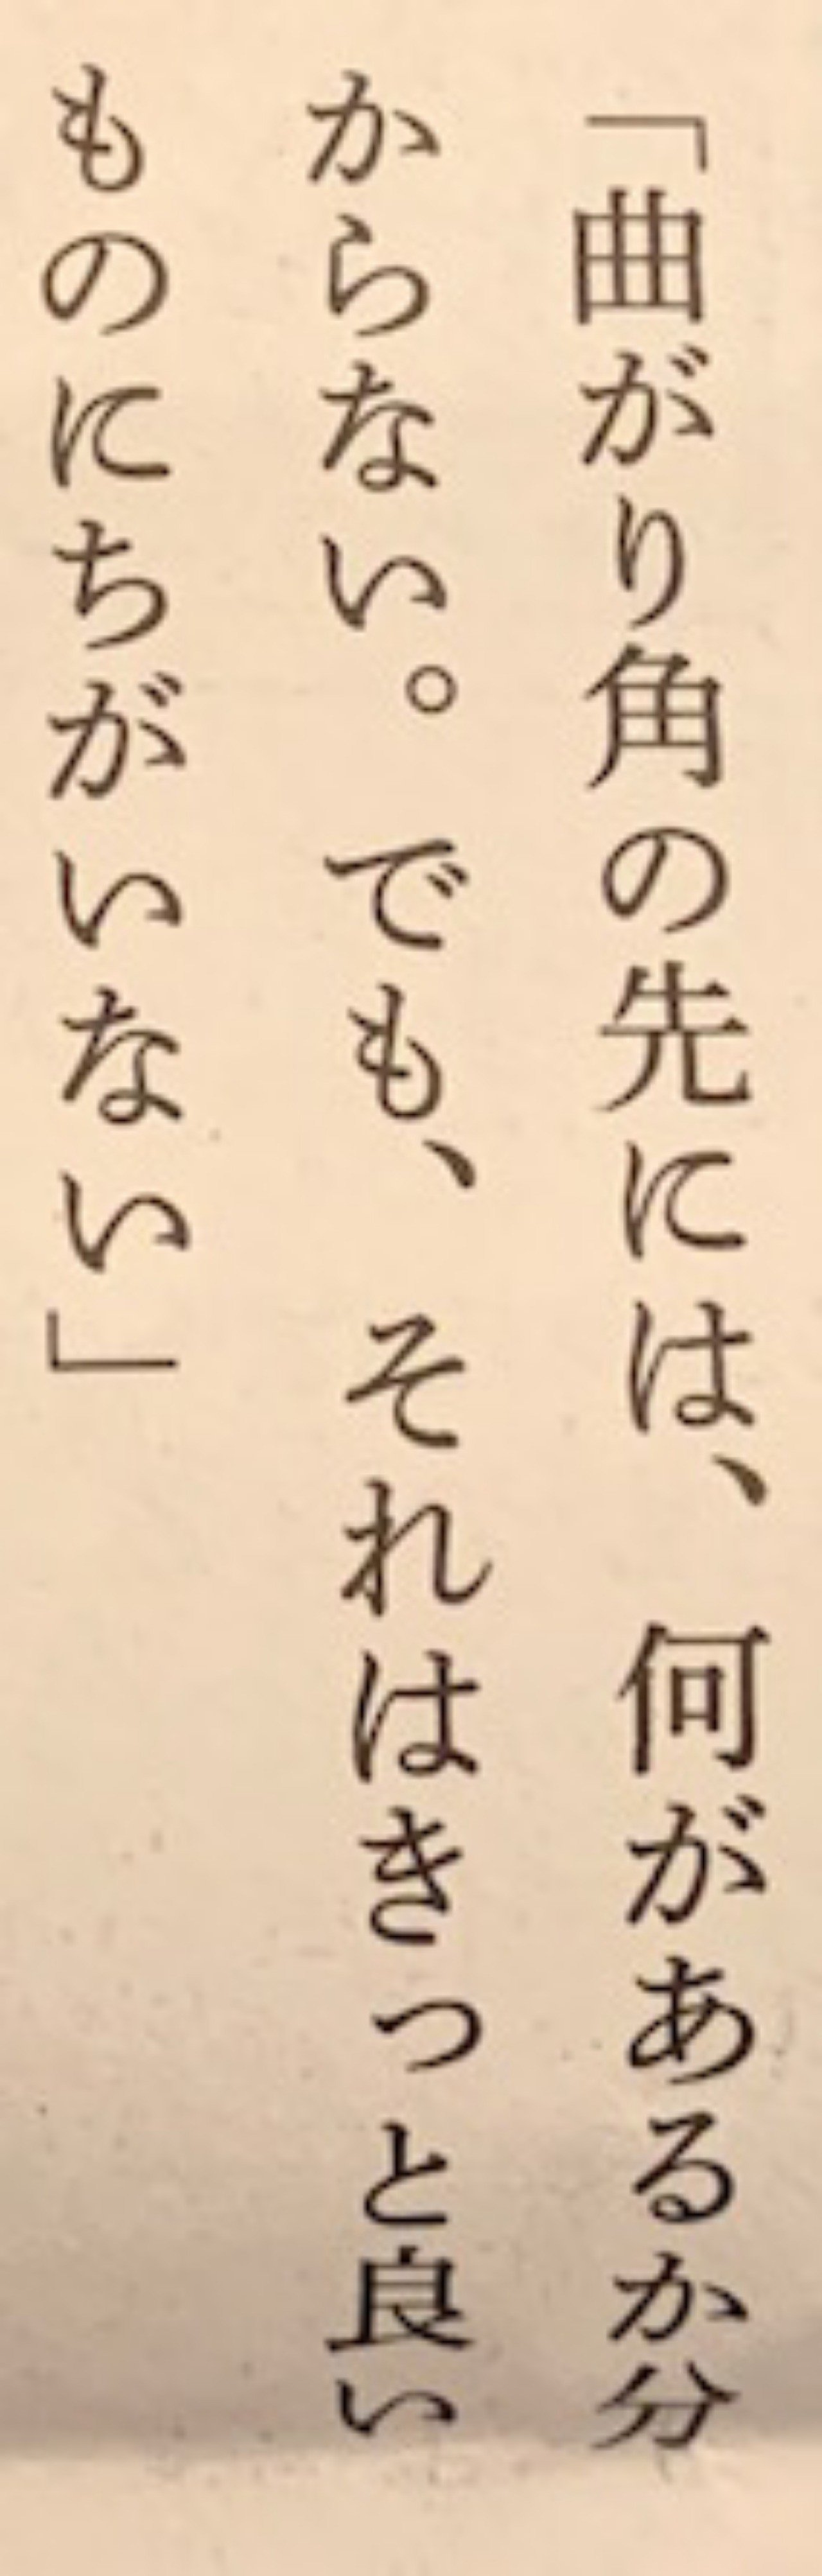 「曲がり角の先には、何があるか分
からない。でも、それはきっと良い
ものにちがいない」